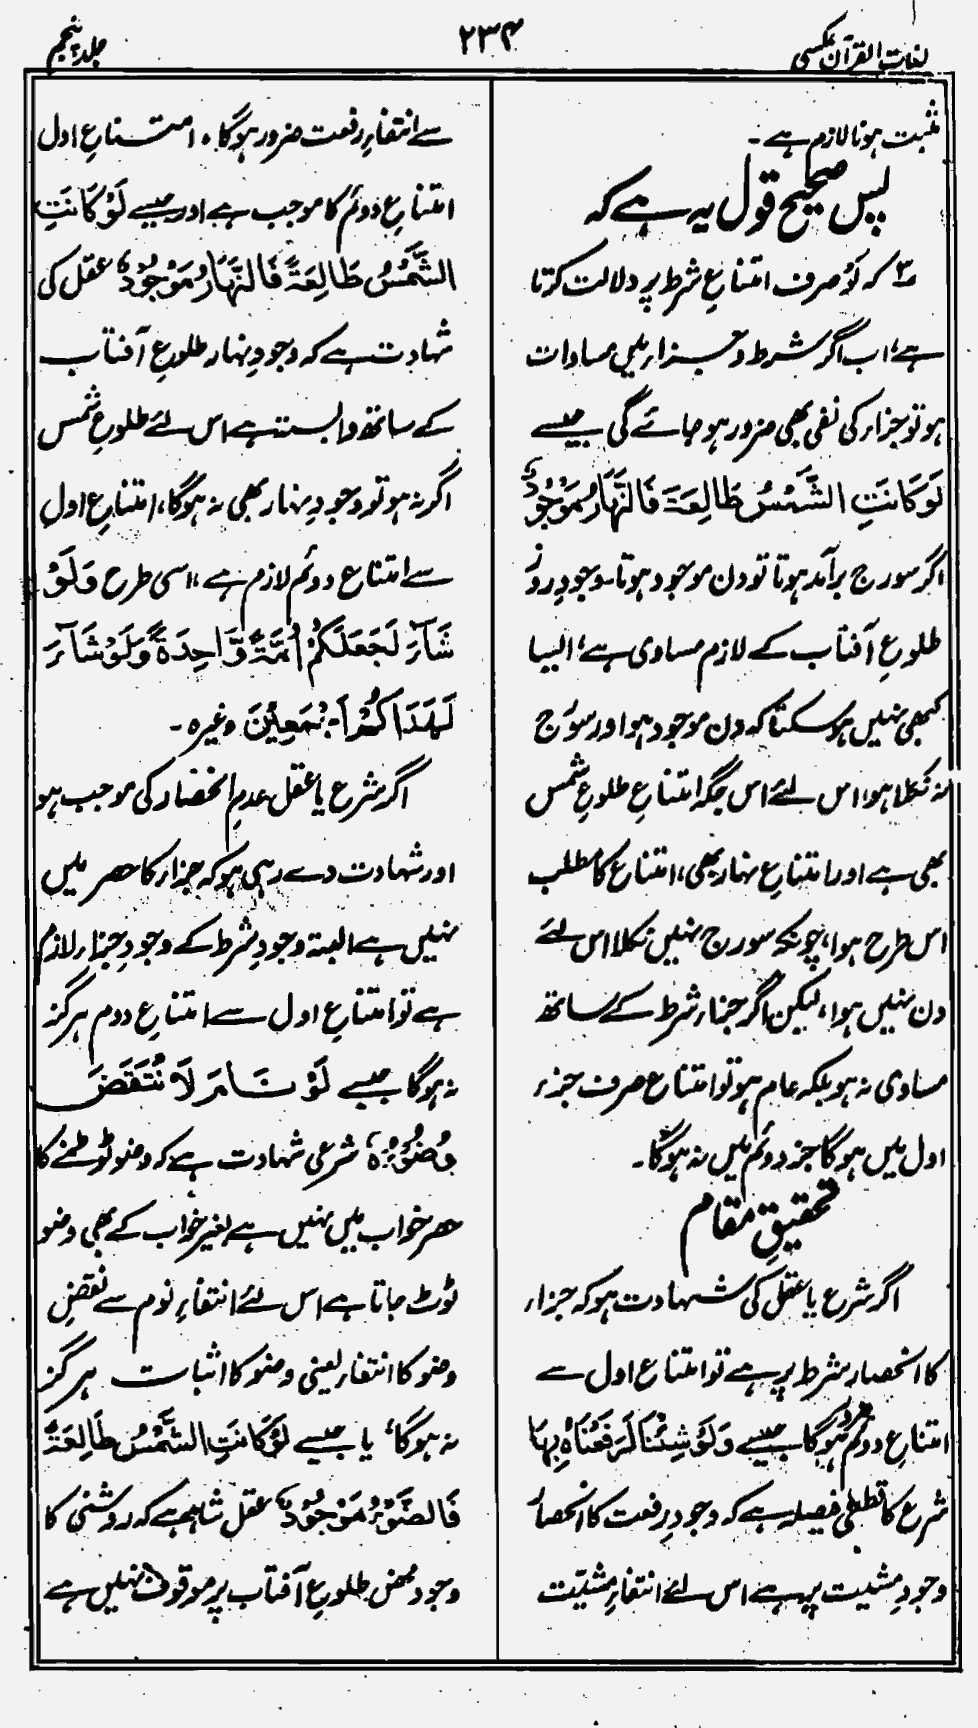 لغات القرآن عکسی
۲۳۴
جلد پنجم
مثبت ہونا لازم ہے۔
پس صحیح قول یہ ہے کہ
۳ کہ لَوْ صرف امتناعِ شرط پر دلالت کرتا
ہے، اب اگر شرط و جزاء میں مساوات
ہو تو جزاء کی نفی بھی ضرور ہو جائے گی جیسے
لَوْ كَانَتِ الشَّمْسُ طَالِعَةً فَالنَّهَارُ مَوْجُوْدٌ
اگر سورج برآمد ہوتا تو دن موجود ہوتا۔ وجودِ روز
طلوعِ آفتاب کے لازم مساوی ہے، ایسا
کبھی نہیں ہو سکتا کہ دن موجود ہو اور سورج
نہ نکلا ہو، اس لئے اس جگہ امتناعِ طلوعِ شمس
بھی ہے اور امتناعِ نہار بھی، امتناع کا مطلب
اس طرح ہوا، چونکہ سورج نہیں نکلا اس لئے
دن نہیں ہوا، لیکن اگر جزاء شرط کے ساتھ
مساوی نہ ہو بلکہ عام ہو تو امتناع صرف جزء
اول میں ہوگا جزء دوئم میں نہ ہوگا۔
تحقیقِ مقام
اگر شرع یا عقل کی شہادت ہو کہ جزاء
کا انحصار شرط پر ہے تو امتناع اول سے
امتناعِ دوئم ضرور ہوگا جیسے وَلَوْ شِئْنَا لَرَفَعْنَاهُ بِهَا
شرع کا قطعی فیصلہ ہے کہ وجودِ رفعت کا انحصار
وجودِ مشیت پر ہے اس لئے انتفاءِ مشیّت
سے انتفاءِ رفعت ضرور ہوگا۔ امتناعِ اول
امتناعِ دوئم کا موجب ہے اور جیسے لَوْ كَانَتِ
الشَّمْسُ طَالِعَةً فَالنَّهَارُ مَوْجُوْدٌ عقل کی
شہادت ہے کہ وجودِ نہار طلوعِ آفتاب
کے ساتھ وابستہ ہے اس لئے طلوعِ شمس
اگر نہ ہو تو وجودِ نہار بھی نہ ہوگا، امتناعِ اول
سے امتناع دوئم لازم ہے، اسی طرح وَلَوْ
شَآءَ لَجَعَلَكُمْ اُمَّةً وَّاحِدَةً وَلَوْ شَآءَ
لَهَدَاكُمْ اَجْمَعِيْنَ وغیرہ۔
اگر شرع یا عقل عدمِ انحصار کی موجب ہو
اور شہادت دے رہی ہو کہ جزاء کا حصر میں
نہیں ہے البتہ وجودِ شرط کے وجودِ جزاء لازم
ہے تو امتناعِ اول سے امتناعِ دوم ہرگز
نہ ہوگا جیسے لَوْ نَامَ لَانْتَقَضَ
وُضُوْءُهٗ شرعی شہادت ہے کہ وضو ٹوٹنے کا
حصر خواب میں نہیں ہے بغیر خواب کے بھی وضو
ٹوٹ جاتا ہے اس لئے انتفاءِ نوم سے نقضِ
وضو کا انتفاء یعنی وضو کا اثبات ہرگز
نہ ہوگا، یا جیسے لَوْ كَانَتِ الشَّمْسُ طَالِعَةً
فَالضَّوْءُ مَوْجُوْدٌ عقل شاہد ہے کہ روشنی کا
وجود محض طلوعِ آفتاب پر موقوف نہیں ہے